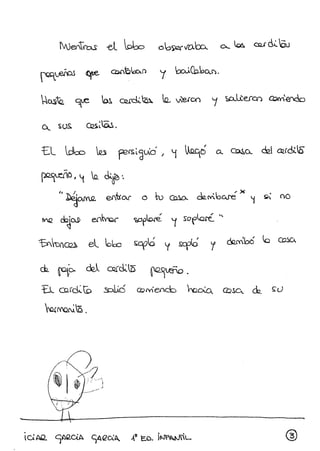 Mientras el lobo observaba a los cerditos
pequeños que cantaban y bailaban.
Hasta que los cerditos le vieron y salieron corriendo
a sus casitas.
El lobo les persiguió, y llegó a casa del cerdito
pequeño, y le dijo:
"Déjame entrar o tu casa derribaré" y si no
me dejas entrar soplaré y soplaré "
Entonces el lobo sopló y sopló y derribó la casa
de paja del cerdito pequeño.
El cerdito salió corriendo hacia casa de su
hermanito.
ICIAR GARCÍA GARCÍA 1º ED. INFANTIL
3